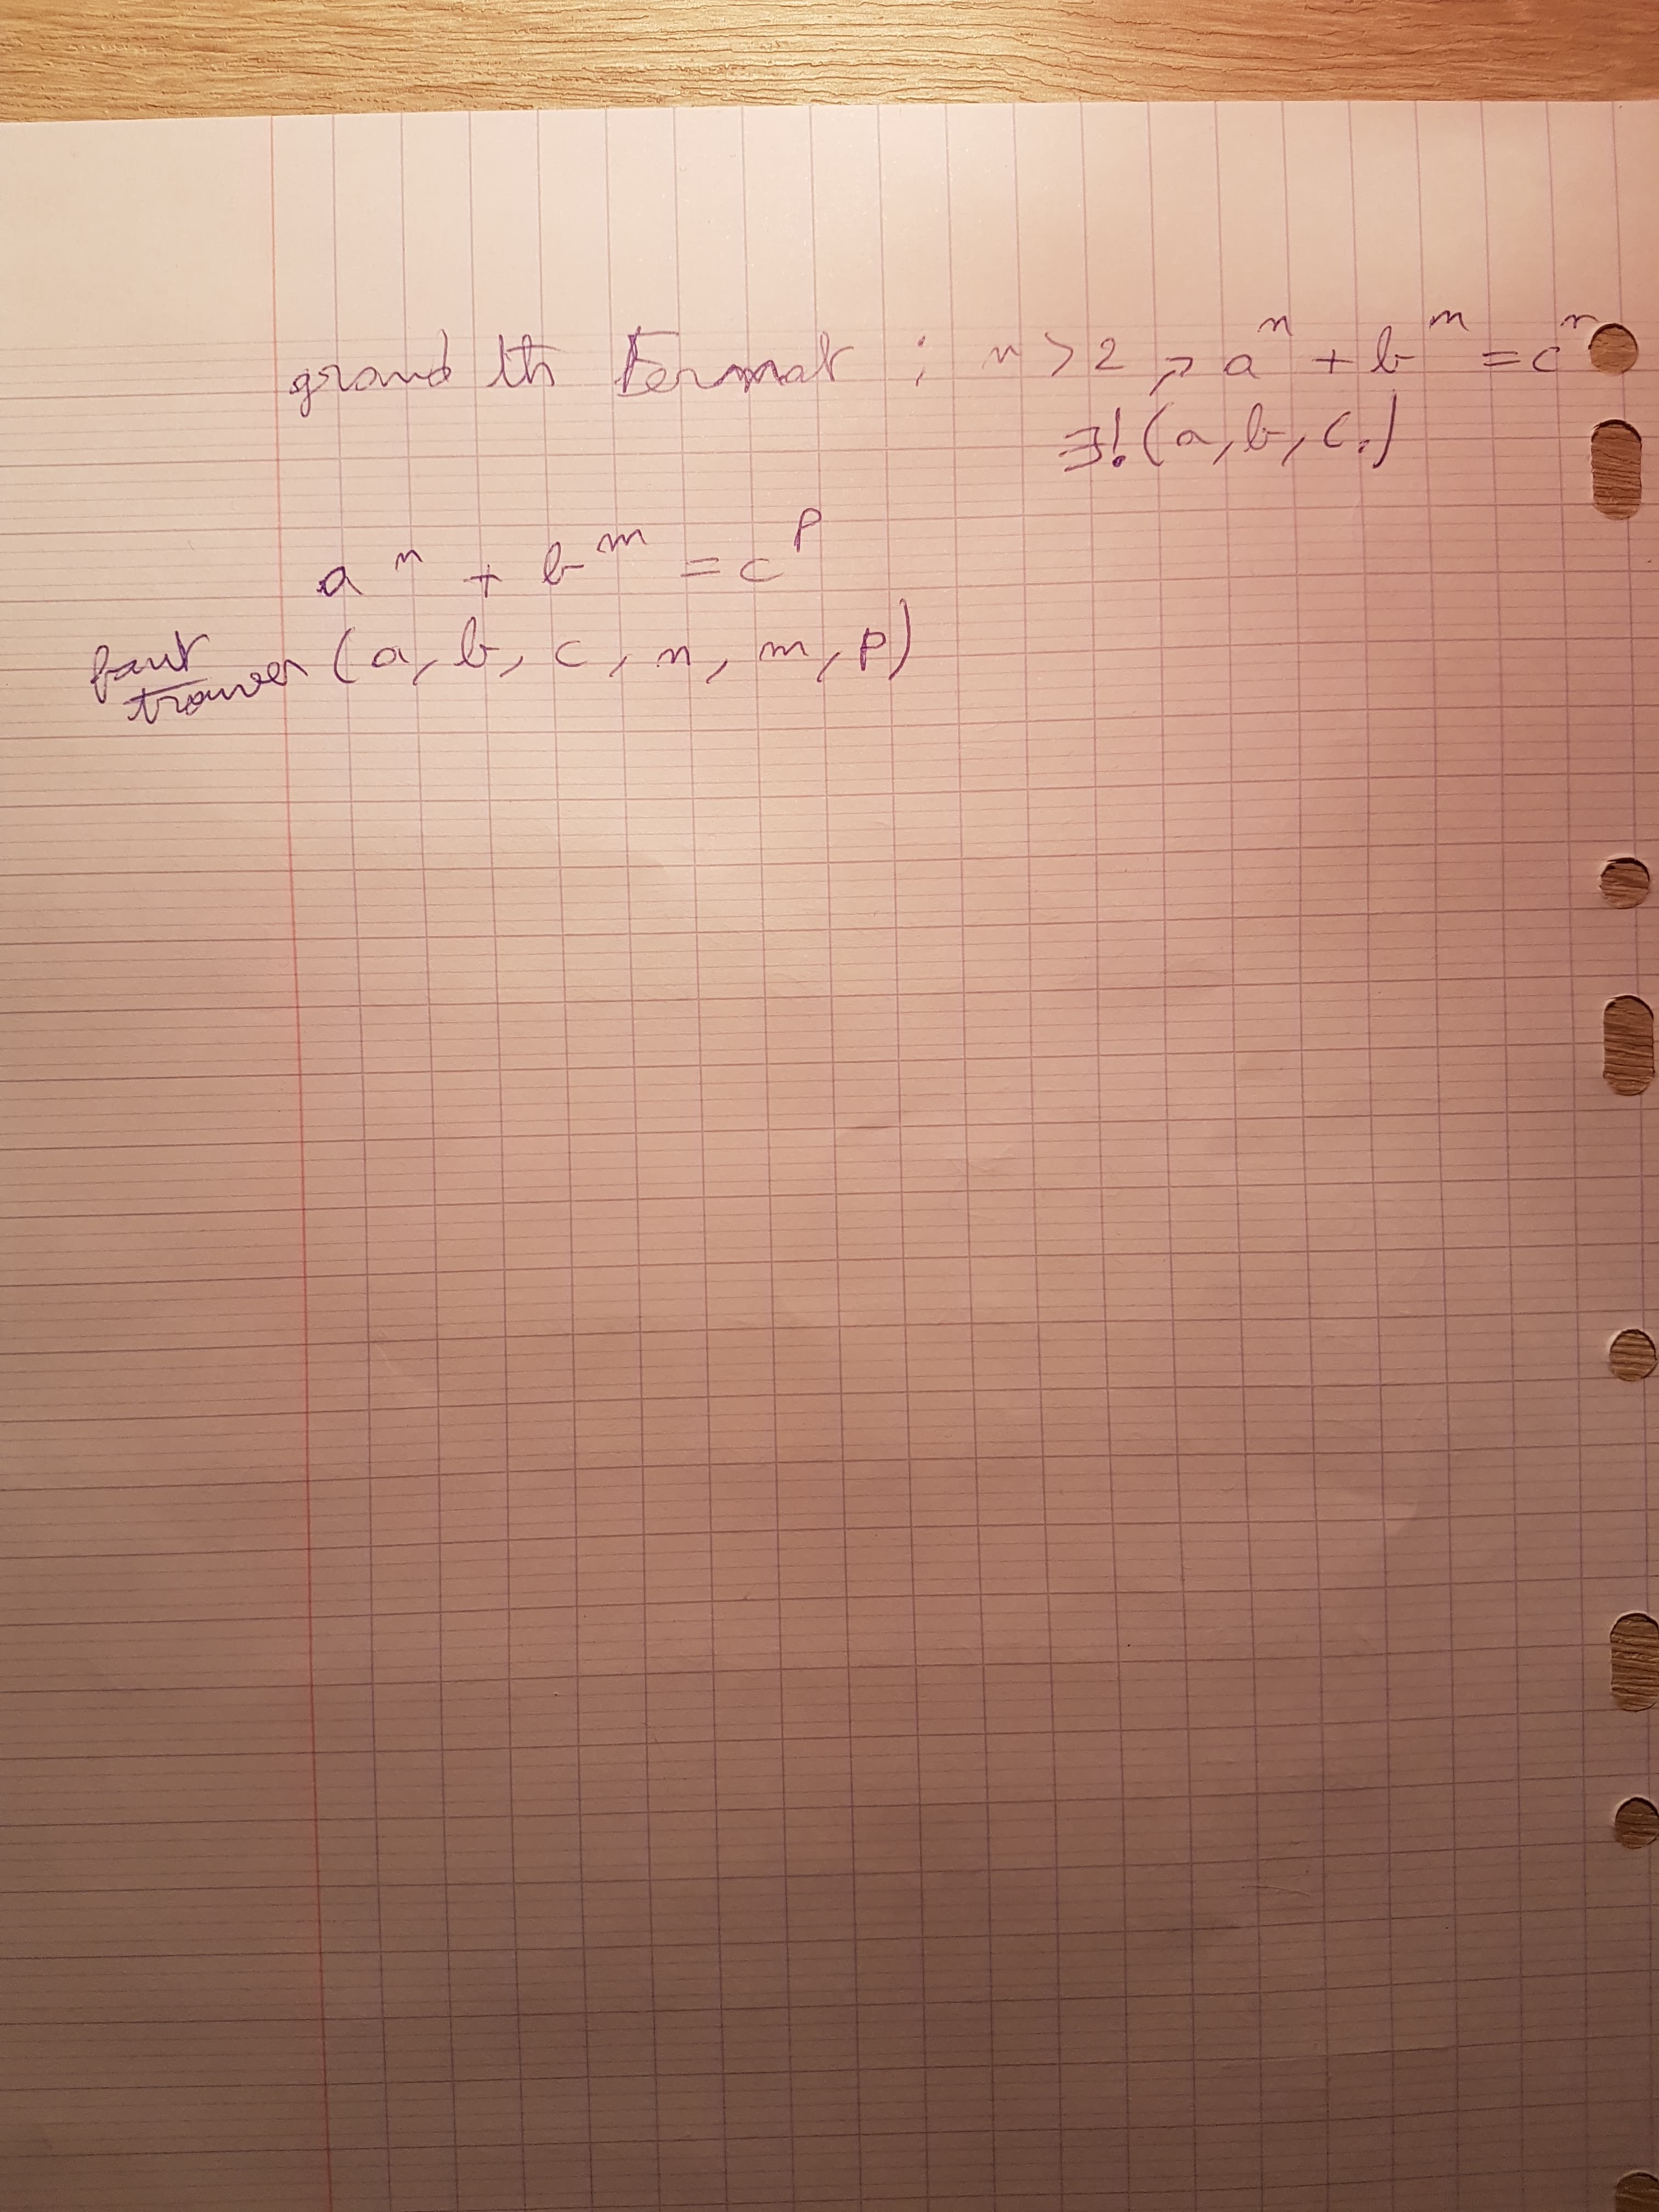 grand th Fermat : n > 2, a^n + b^n = c^n
∃! (a, b, c,)
a^n + b^m = c^p
faut
trouver (a, b, c, n, m, p)